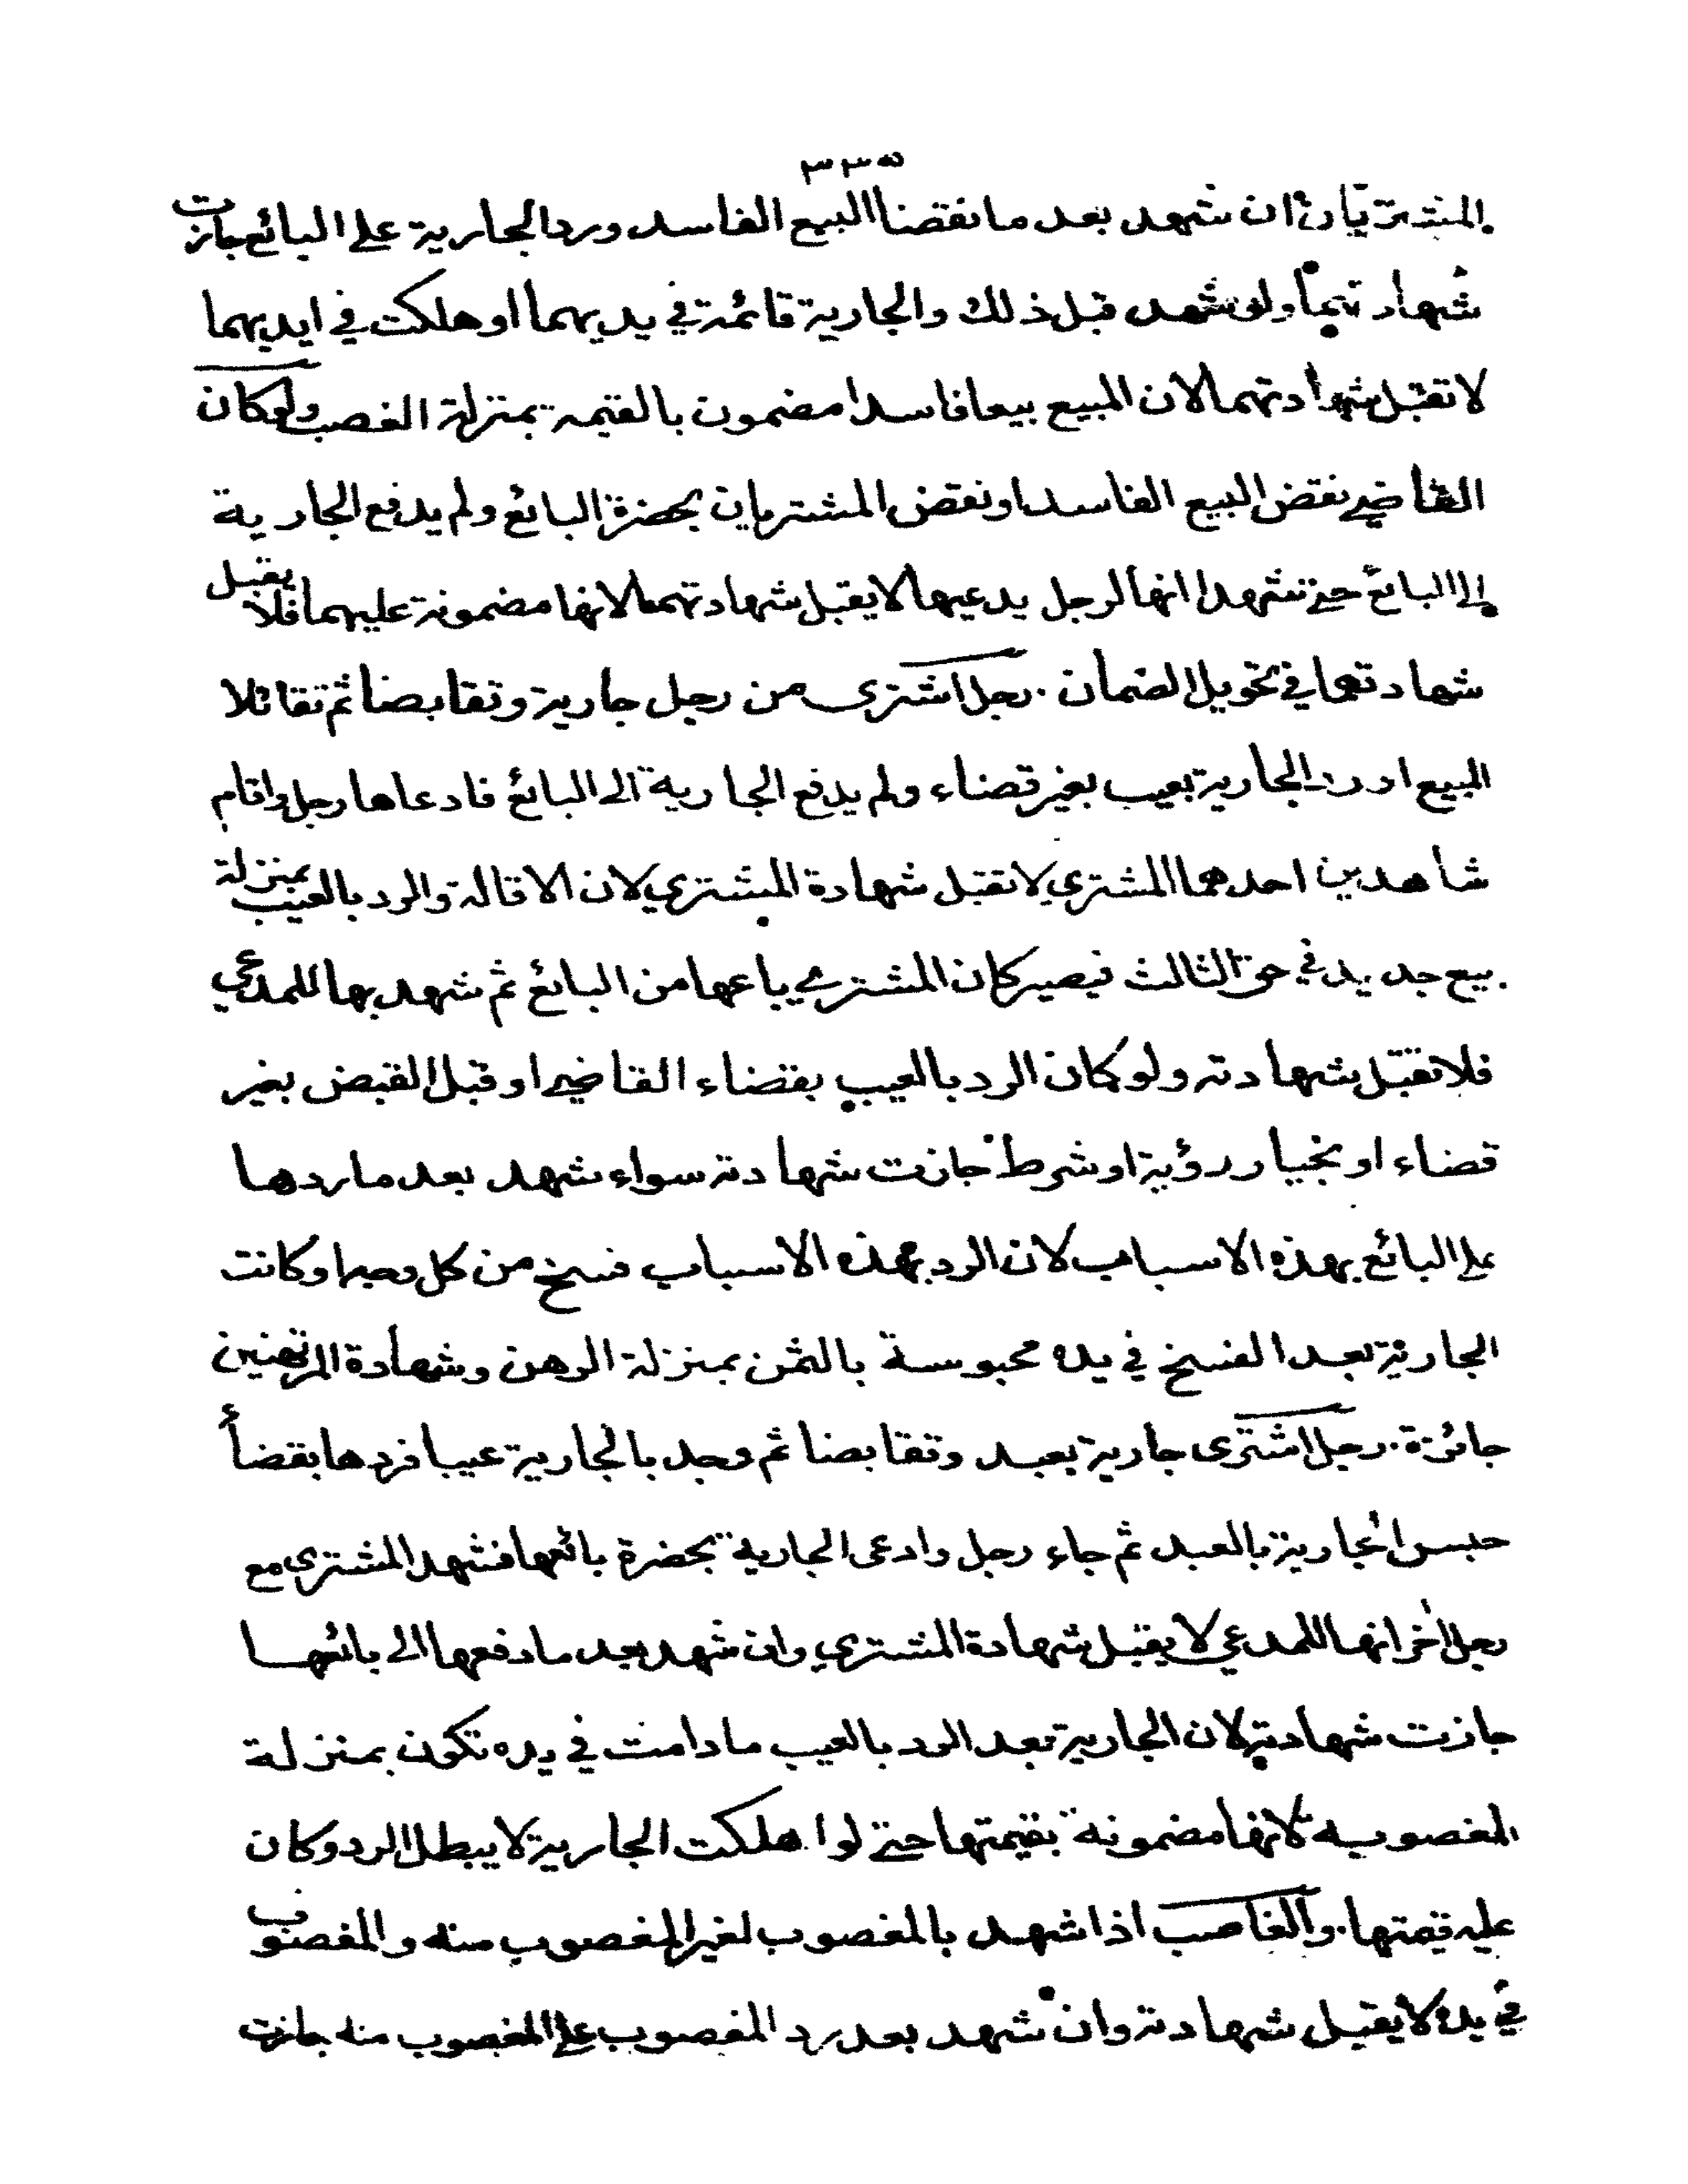 ٣٣٥
المشتريان ان شهد بعد ما نقضا البيع الفاسد ورد الجارية على البائع جازت
شهادتهما ولو شهد قبل ذلك والجارية قائمة في يديهما او هلكت في ايديهما
لا تقبل شهادتهما لان المبيع بيعا فاسدا مضمون بالقيمة بمنزلة الغصب ولو كان
القاضي نقض البيع الفاسد او نقض المشتريان بحضرة البائع ولم يدفع الجارية
الى البائع حتى شهدا انها لرجل يدعيها لا يقبل شهادتهما لانها مضمونة عليهما فلا يقبل
شهادتهما في تحويل الضمان . رجل اشترى من رجل جارية وتقابضا ثم تقائلا
البيع او رد الجارية بعيب بغير قضاء ولم يدفع الجارية الى البائع فادعاها رجل واقام
شاهدين احدهما المشتري لا تقبل شهادة المشتري لان الاقالة والرد بالعيب بمنزلة
بيع جديد في حق الثالث فيصير كان المشتري باعها من البائع ثم شهد بها للمدعي
فلا تقبل شهادته ولو كان الرد بالعيب بقضاء القاضي او قبل القبض بغير
قضاء او بخيار رؤية او شرط جازت شهادته سواء شهد بعد ما ردها
على البائع بهذه الاسباب لان الرد بهذه الاسباب فسخ من كل وجه او كانت
الجارية بعد الفسخ في يده محبوسة بالثمن بمنزلة الرهن وشهادة المرتهنين
جائزة . رجل اشترى جارية بعبد وتقابضا ثم وجد بالجارية عيبا فردها بقضأ
حبس الجارية بالعبد ثم جاء رجل وادعى الجارية بحضرة بائعها فشهد المشترى مع
رجل اخر انها للمدعي لا يقبل شهادة المشتري وان شهد بعد ما دفعها الى بائعها
جازت شهادته لان الجارية بعد الرد بالعيب ما دامت في يده تكون بمنزلة
المغصوبه لانها مضمونة بقيمتها حتى لوا هلكت الجارية لا يبطل الرد وكان
عليه قيمتها . والغاصب اذا شهد بالمغصوب لغير المغصوب منه والمغصوب
في يده لا يقبل شهادته وان شهد بعد رد المغصوب على المغصوب منه جازت